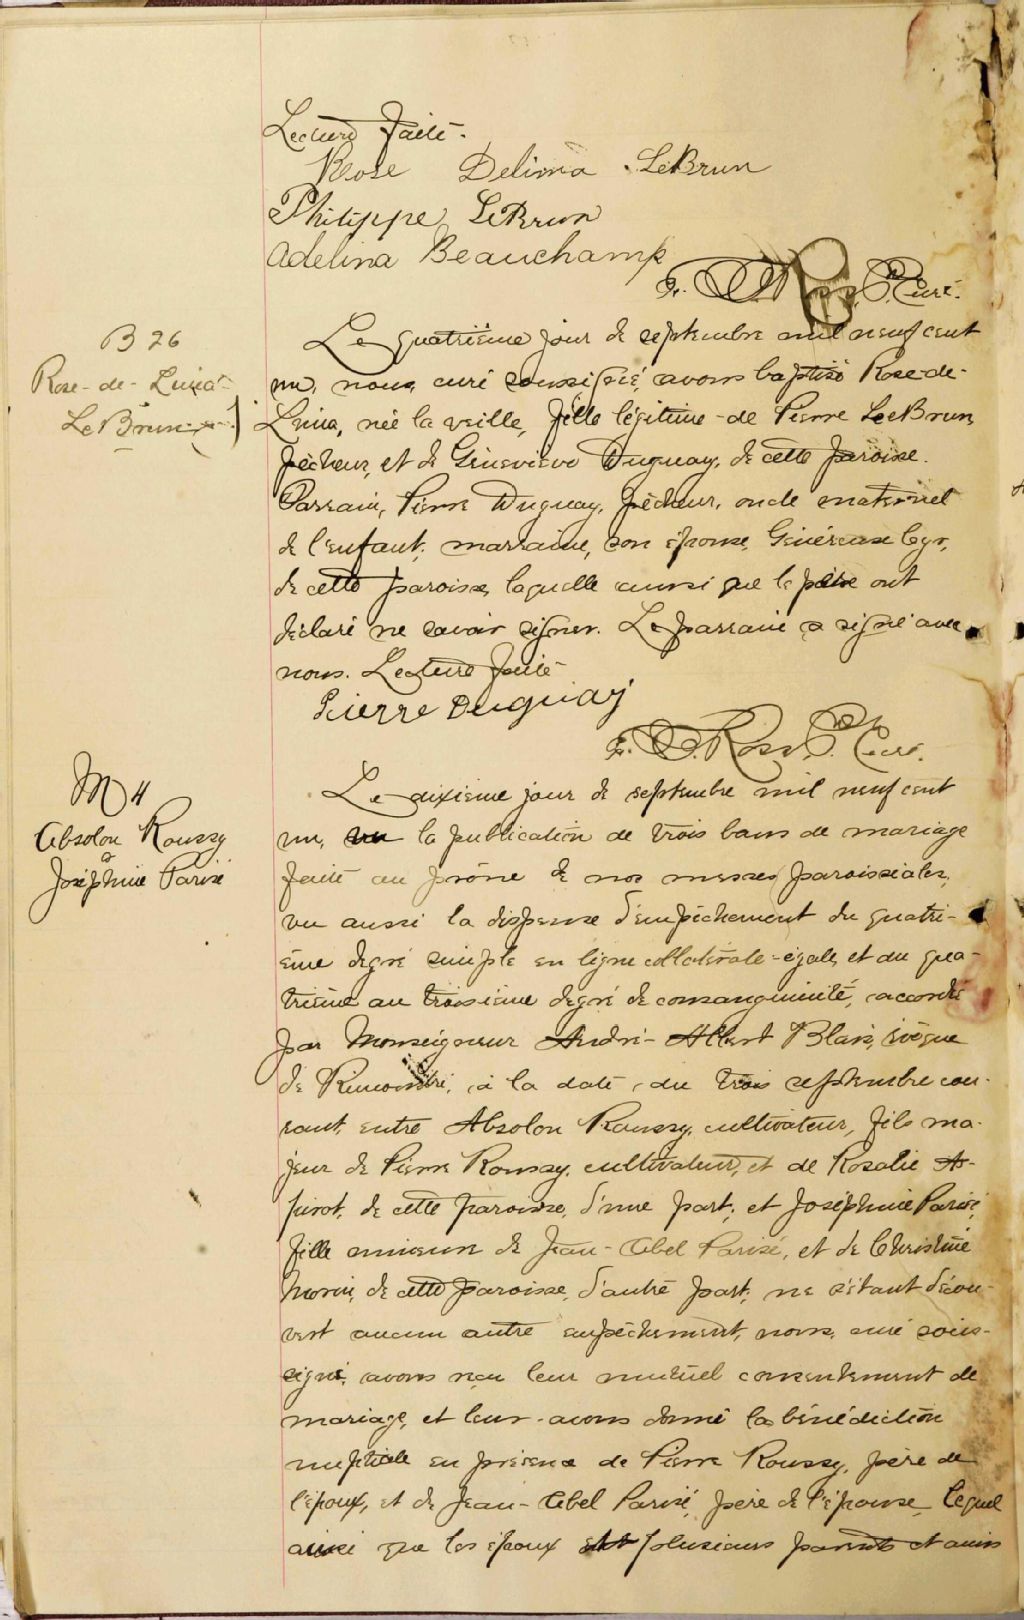 Lecture faite.
Rose Delima LeBrun
Philippe LeBrun
Adelina Beauchamp
Ptre Curé.
B 26
Rose-de-Lima
LeBrun
Le quatrième jour de septembre mil neuf cent
un, nous, curé soussigné, avons baptisé Rose-de-
Lima, née la veille, fille légitime de Pierre LeBrun,
pêcheur, et de Geneviève Duguay, de cette paroisse.
Parrain, Pierre Duguay, pêcheur, oncle maternel
de l'enfant, marraine, son épouse, Généreuse Cyr,
de cette paroisse, laquelle ainsi que le père ont
déclaré ne savoir signer. Le parrain a signé avec
nous. Lecture faite
Pierre Duguay
Ross, P. Curé.
M 4
Absolon Roussy
&
Joséphine Parisé
Le dixième jour de septembre mil neuf cent
un, vu la publication de trois bans de mariage
faite au prône de nos messes paroissiales,
vu aussi la dispense d'empêchement du quatri-
ème degré simple en ligne collatérale égale, et du qua-
trième au troisième degré de consanguinité, accordée
par Monseigneur André-Albert Blais, évêque
de Rimouski, à la date du trois septembre cou-
rant, entre Absolon Roussy, cultivateur, fils ma-
jeur de Pierre Roussy, cultivateur, et de Rosalie As-
pirot, de cette paroisse, d'une part; et Joséphine Parisé,
fille mineure de Jean-Abel Parisé, et de Christine
Morin, de cette paroisse, d'autre part; ne s'étant décou-
vert aucun autre empêchement, nous, curé sous-
signé, avons reçu leur mutuel consentement de
mariage, et leur avons donné la bénédiction
nuptiale en présence de Pierre Roussy, père de
l'époux, et de Jean-Abel Parisé, père de l'épouse, lequel
ainsi que les époux et plusieurs parents et amis